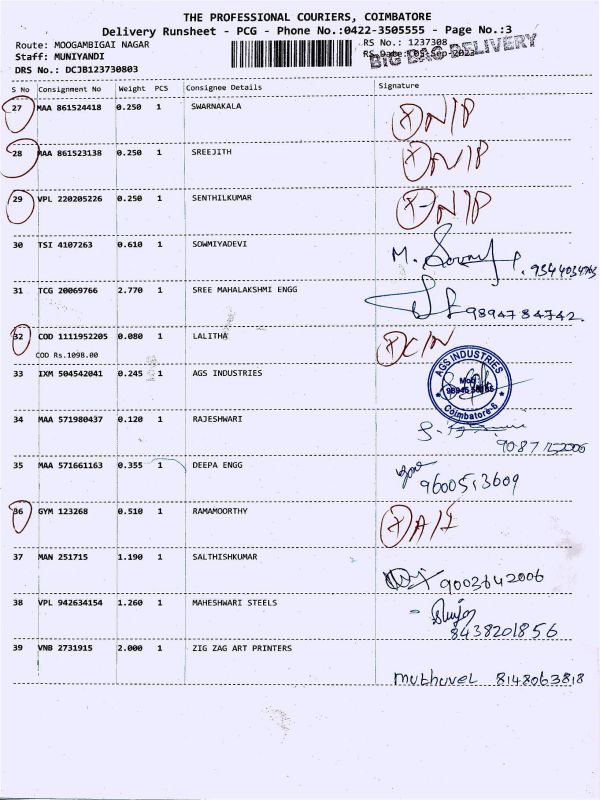 THE PROFESSIONAL COURIERS, COIMBATORE
Delivery Runsheet - PCG - Phone No.:0422-3505555 - Page No.:3
Route: MOOGAMBIGAI NAGAR
RS No.: 1237308
Staff: MUNIYANDI
RS Date: 05-Sep-2023
BIG BAG DELIVERY
DRS No.: DCJB123730803
S No Consignment No Weight PCS Consignee Details Signature
27 MAA 861524418 0.250 1 SWARNAKALA X N/P
28 MAA 861523138 0.250 1 SREEJITH X N/P
29 VPL 220205226 0.250 1 SENTHILKUMAR X N/P
30 TSI 4107263 0.610 1 SOWMIYADEVI M.
31 TCG 20069766 2.770 1 SREE MAHALAKSHMI ENGG 9894784742.
32 COD 1111952205 0.080 1 LALITHA
COD Rs.1098.00
33 IXM 504542041 0.245 1 AGS INDUSTRIES
AGS INDUSTRIES
Coimbatore-6
34 MAA 571980437 0.120 1 RAJESHWARI
35 MAA 571661163 0.355 1 DEEPA ENGG
9600513609
36 GYM 123268 0.510 1 RAMAMOORTHY
37 MAN 251715 1.190 1 SALTHISHKUMAR
9003642006
38 VPL 942634154 1.260 1 MAHESHWARI STEELS
8438201856
39 VNB 2731915 2.000 1 ZIG ZAG ART PRINTERS
Muthuvel 8148063818